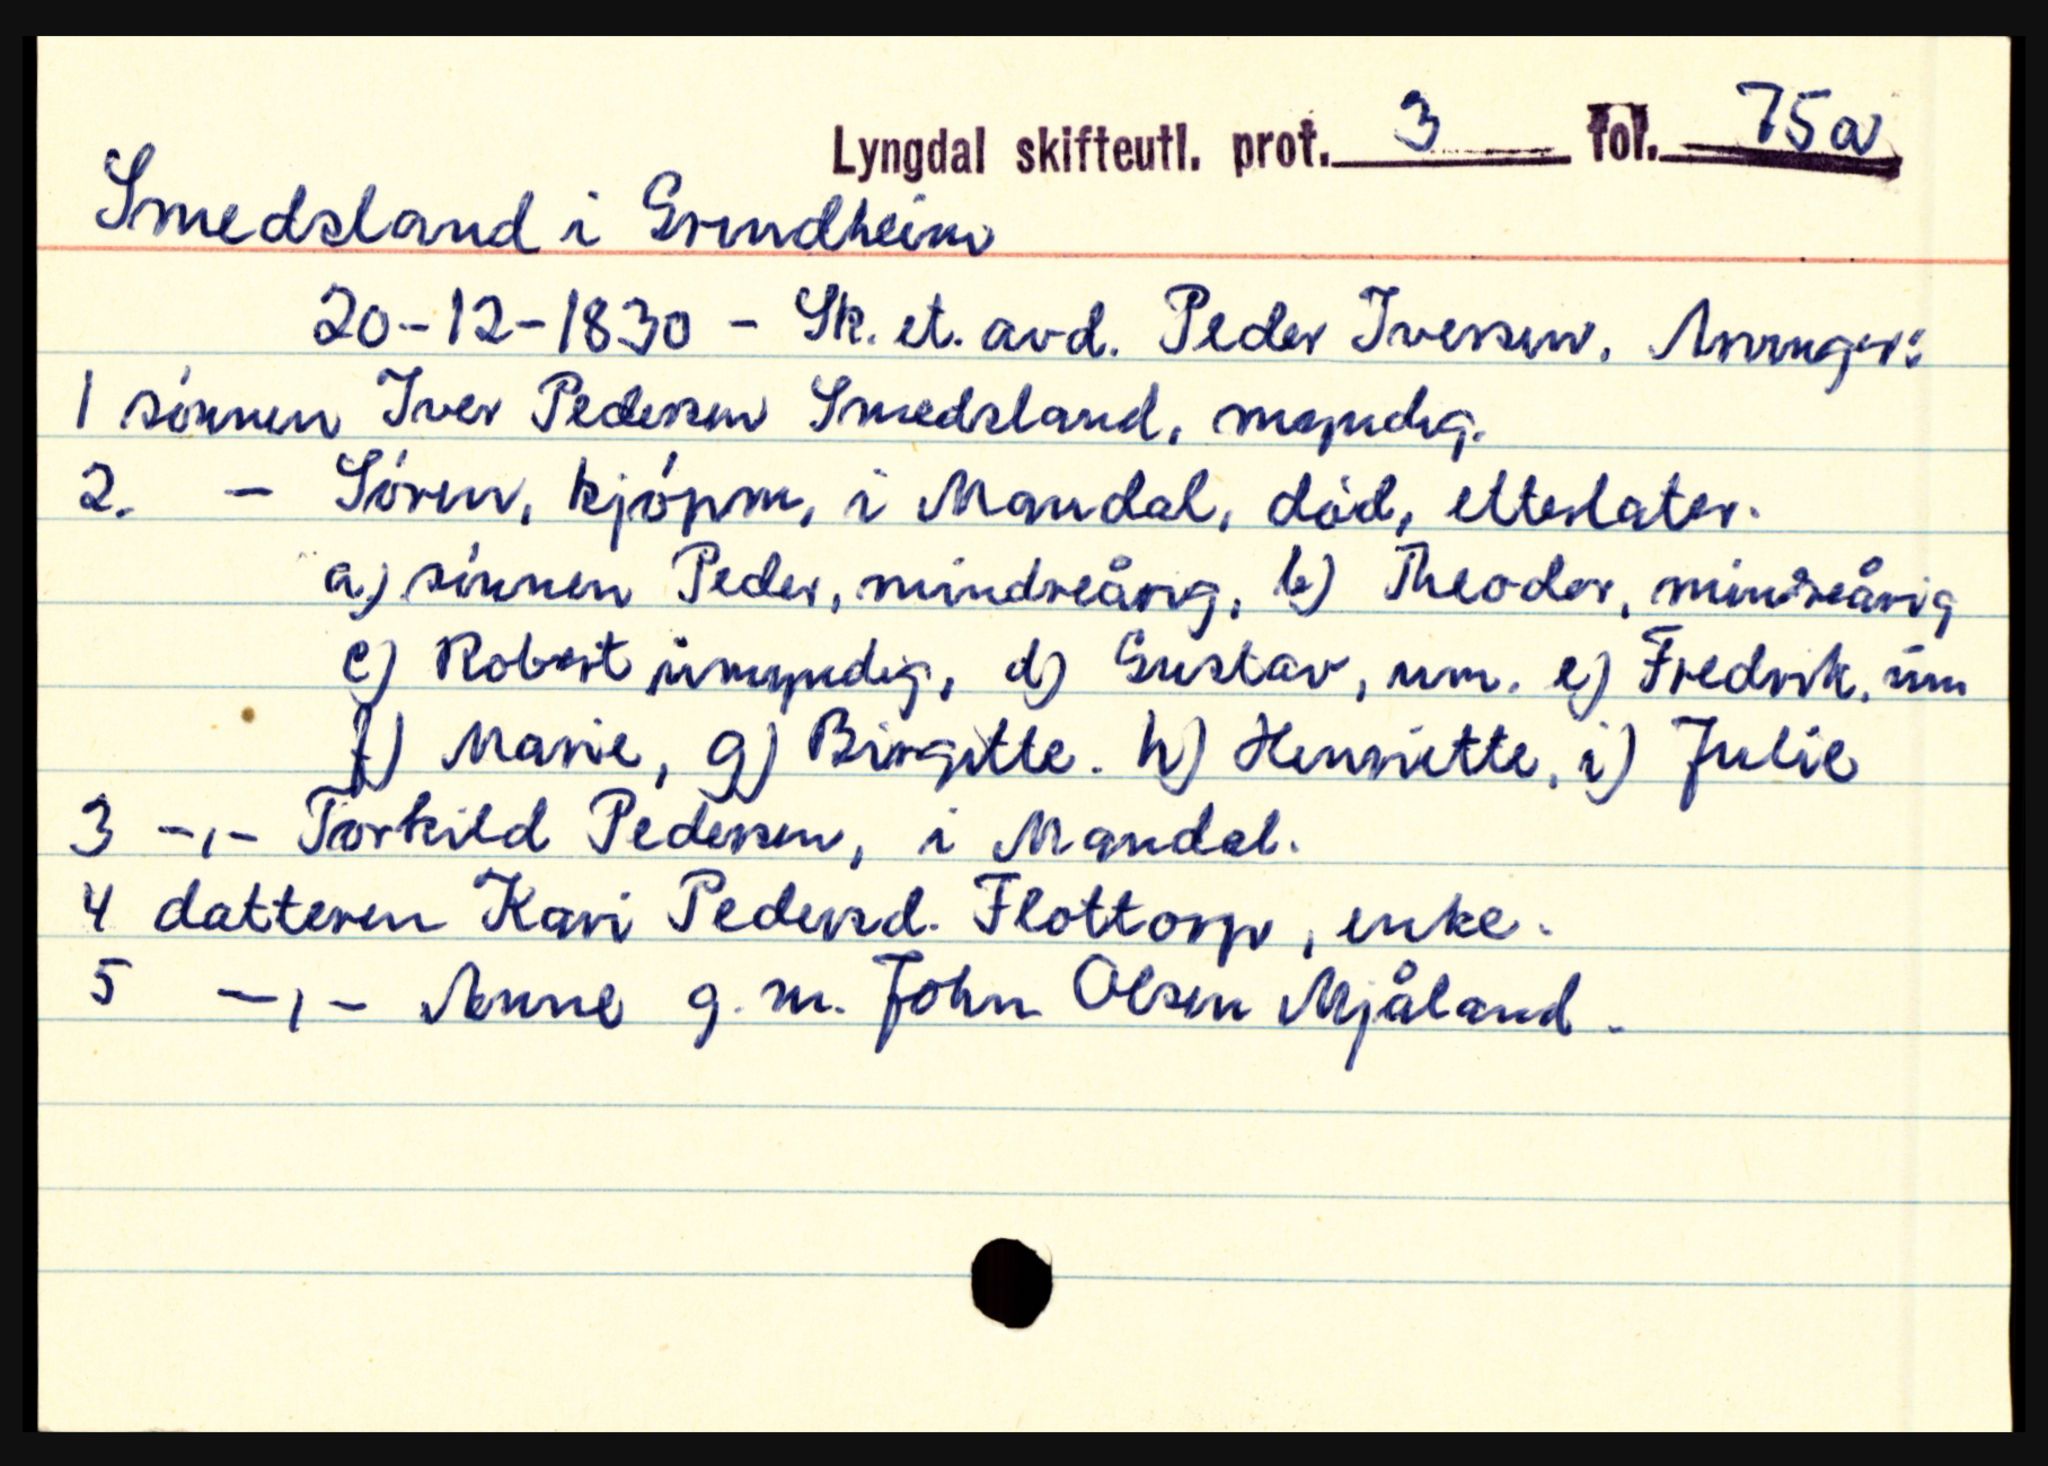 Lyngdal skifteutl. prot. 3 fol. 75a
Smedsland i Grindheim
20-12-1830 - Sk. et. avd. Peder Iversen. Arvinger:
1 sønnen Iver Pedersen Smedsland, myndig.
2. - Søren, kjøpm, i Mandal, død, etterlater.
a) sønnen Peder, mindreårig, b) Theodor, mindreårig
c) Robert umyndig, d) Gustav, um. e) Fredrik, um
f) Marie, g) Birgitte. h) Henriette, i) Julie
3 -,- Torkild Pedersen, i Mandal.
4 datteren Kari Pedersd. Flottorp, enke.
5 -,- Anne g. m. John Olsen Mjåland.